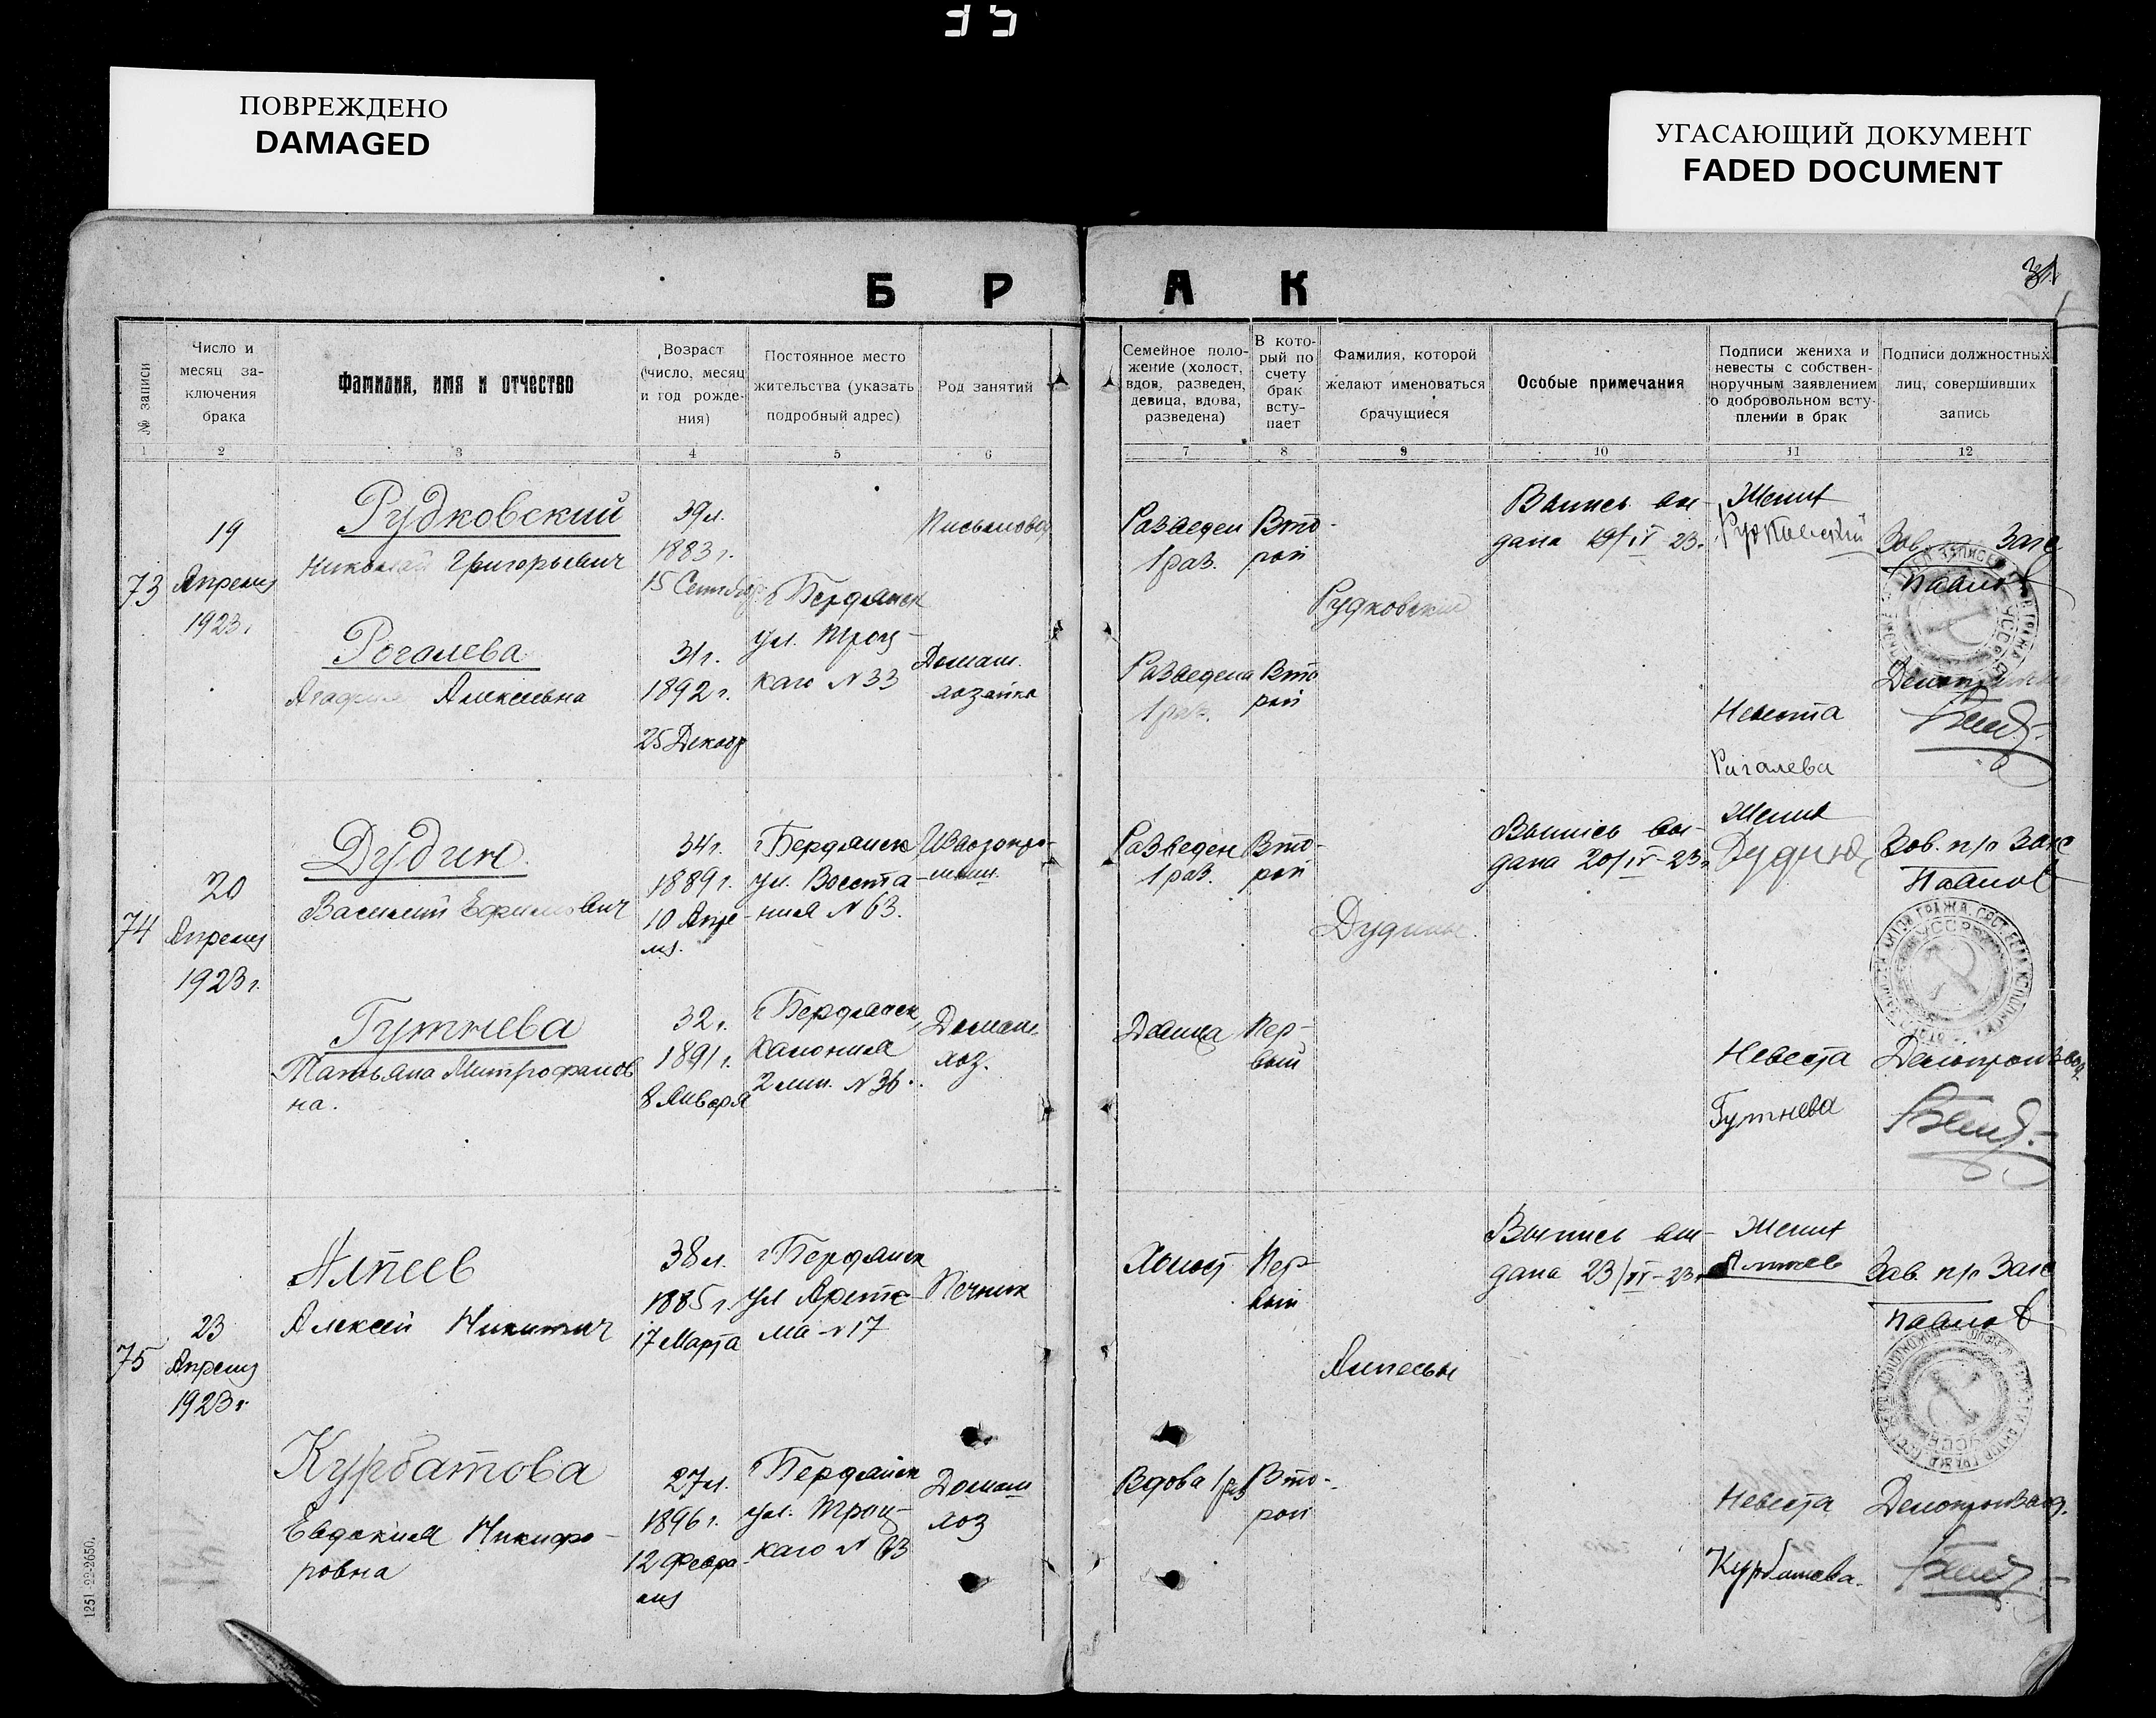 35
ПОВРЕЖДЕНО
DAMAGED
УГАСАЮЩИЙ ДОКУМЕНТ
FADED DOCUMENT
БРАК
31
№ записи
Число и
месяц за-
ключения
брака
Фамилия, имя и отчество
Возраст
(число, месяц
и год рожде-
ния)
Постоянное место
жительства (указать
подробный адрес)
Род занятий
Семейное поло-
жение (холост,
вдов, разведен,
девица, вдова,
разведена)
В кото-
рый по
счету
брак
всту-
пает
Фамилия, которой
желают именоваться
брачущиеся
Особые примечания
Подписи жениха и
невесты с собствен-
норучным заявлением
о добровольном всту-
плении в брак
Подписи должностных
лиц, совершивших
запись
1 2 3 4 5 6 7 8 9 10 11 12
73
19
Апреля
1923 г.
Рудковский
Николай Григорьевич
39 л.
1883 г.
15 Сентябр
Письмовод
Разведен
1 раз.
Вто-
рой
Выпись вы-
дана 19/IV 23.
Жених
Рудковский
Зав. Загс
Павлов
Роголева
Агафия Алексеевна
31 г.
1892 г.
25 Декабр
г Бердянск
ул. Троц-
каго N 33
Домаш.
хозяйка
Разведена
1 раз.
Вто
рой
Рудковский
Невеста
Рагалева
74
20
Апреля
1923 г.
Дудин
Василий Ефимович
34 г.
1889 г.
10 Апре-
ля.
г Бердянск
ул. Восста-
ния N 63.
Разведен
1 раз.
Вто-
рой
Дудины.
Выпись вы-
дана 20/IV-23 г
Жених
Дудин
Зав. п/о Загс
Павлов
Гутнева
Татьяна Митрофанов
на.
32 г.
1891 г.
8 Января
г Бердянск,
Колония
2 лин. N 36.
Домаш.
хоз.
Девица
Пер-
вый
Невеста
Гутнева
Делопроизвод.
75
23
Апреля
1923 г.
Алпеев
Алексей Никитич
38 л.
1885 г.
17 Марта
г Бердянск
ул Артё-
ма N 17
Печник
Холост
Пер-
вый
Алпеевы
Выпись вы-
дана 23/IV-23 г
Жених
Алпеев
Зав. п/о Загс
Павлов
Курбатова
Евдокия Никифо-
ровна
27 л.
1896 г.
12 Февра-
ля
г Бердянск
ул. Троц-
каго N 63
Домаш
хоз
Вдова 1 раз
Вто-
рой
Невеста
Курбатова.
Делопроизвод.
1251-22-2650.